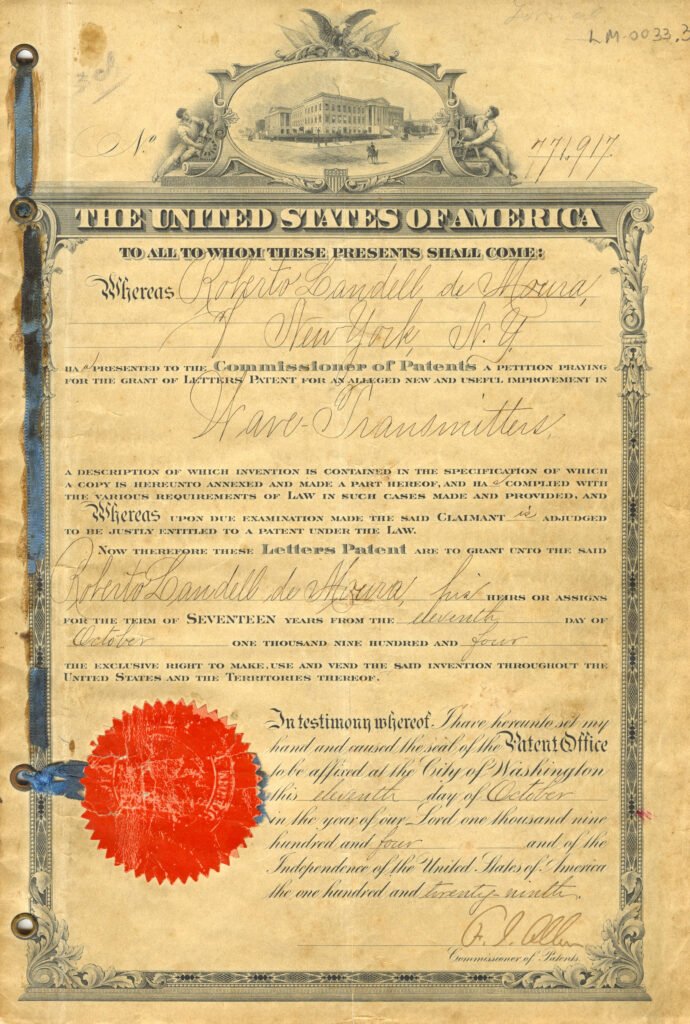 LM-0033.3
No. 771,917.
THE UNITED STATES OF AMERICA
TO ALL TO WHOM THESE PRESENTS SHALL COME:
Whereas Roberto Landell de Moura,
of New York, N. Y.
HAs PRESENTED TO THE Commissioner of Patents A PETITION PRAYING
FOR THE GRANT OF LETTERS PATENT FOR AN ALLEGED NEW AND USEFUL IMPROVEMENT IN
Wave-Transmitters,
A DESCRIPTION OF WHICH INVENTION IS CONTAINED IN THE SPECIFICATION OF WHICH
A COPY IS HEREUNTO ANNEXED AND MADE A PART HEREOF, AND HAs COMPLIED WITH
THE VARIOUS REQUIREMENTS OF LAW IN SUCH CASES MADE AND PROVIDED, AND
Whereas UPON DUE EXAMINATION MADE THE SAID CLAIMANT is ADJUDGED
TO BE JUSTLY ENTITLED TO A PATENT UNDER THE LAW.
NOW THEREFORE THESE Letters Patent ARE TO GRANT UNTO THE SAID
Roberto Landell de Moura, his HEIRS OR ASSIGNS
FOR THE TERM OF SEVENTEEN YEARS FROM THE eleventh DAY OF
October ONE THOUSAND NINE HUNDRED AND four
THE EXCLUSIVE RIGHT TO MAKE, USE AND VEND THE SAID INVENTION THROUGHOUT THE
UNITED STATES AND THE TERRITORIES THEREOF.
In testimony whereof I have hereunto set my
hand and caused the seal of the Patent Office
to be affixed at the City of Washington
this eleventh day of October
in the year of our Lord one thousand nine
hundred and four and of the
Independence of the United States of America
the one hundred and twenty-ninth.
F. I. Allen
Commissioner of Patents.